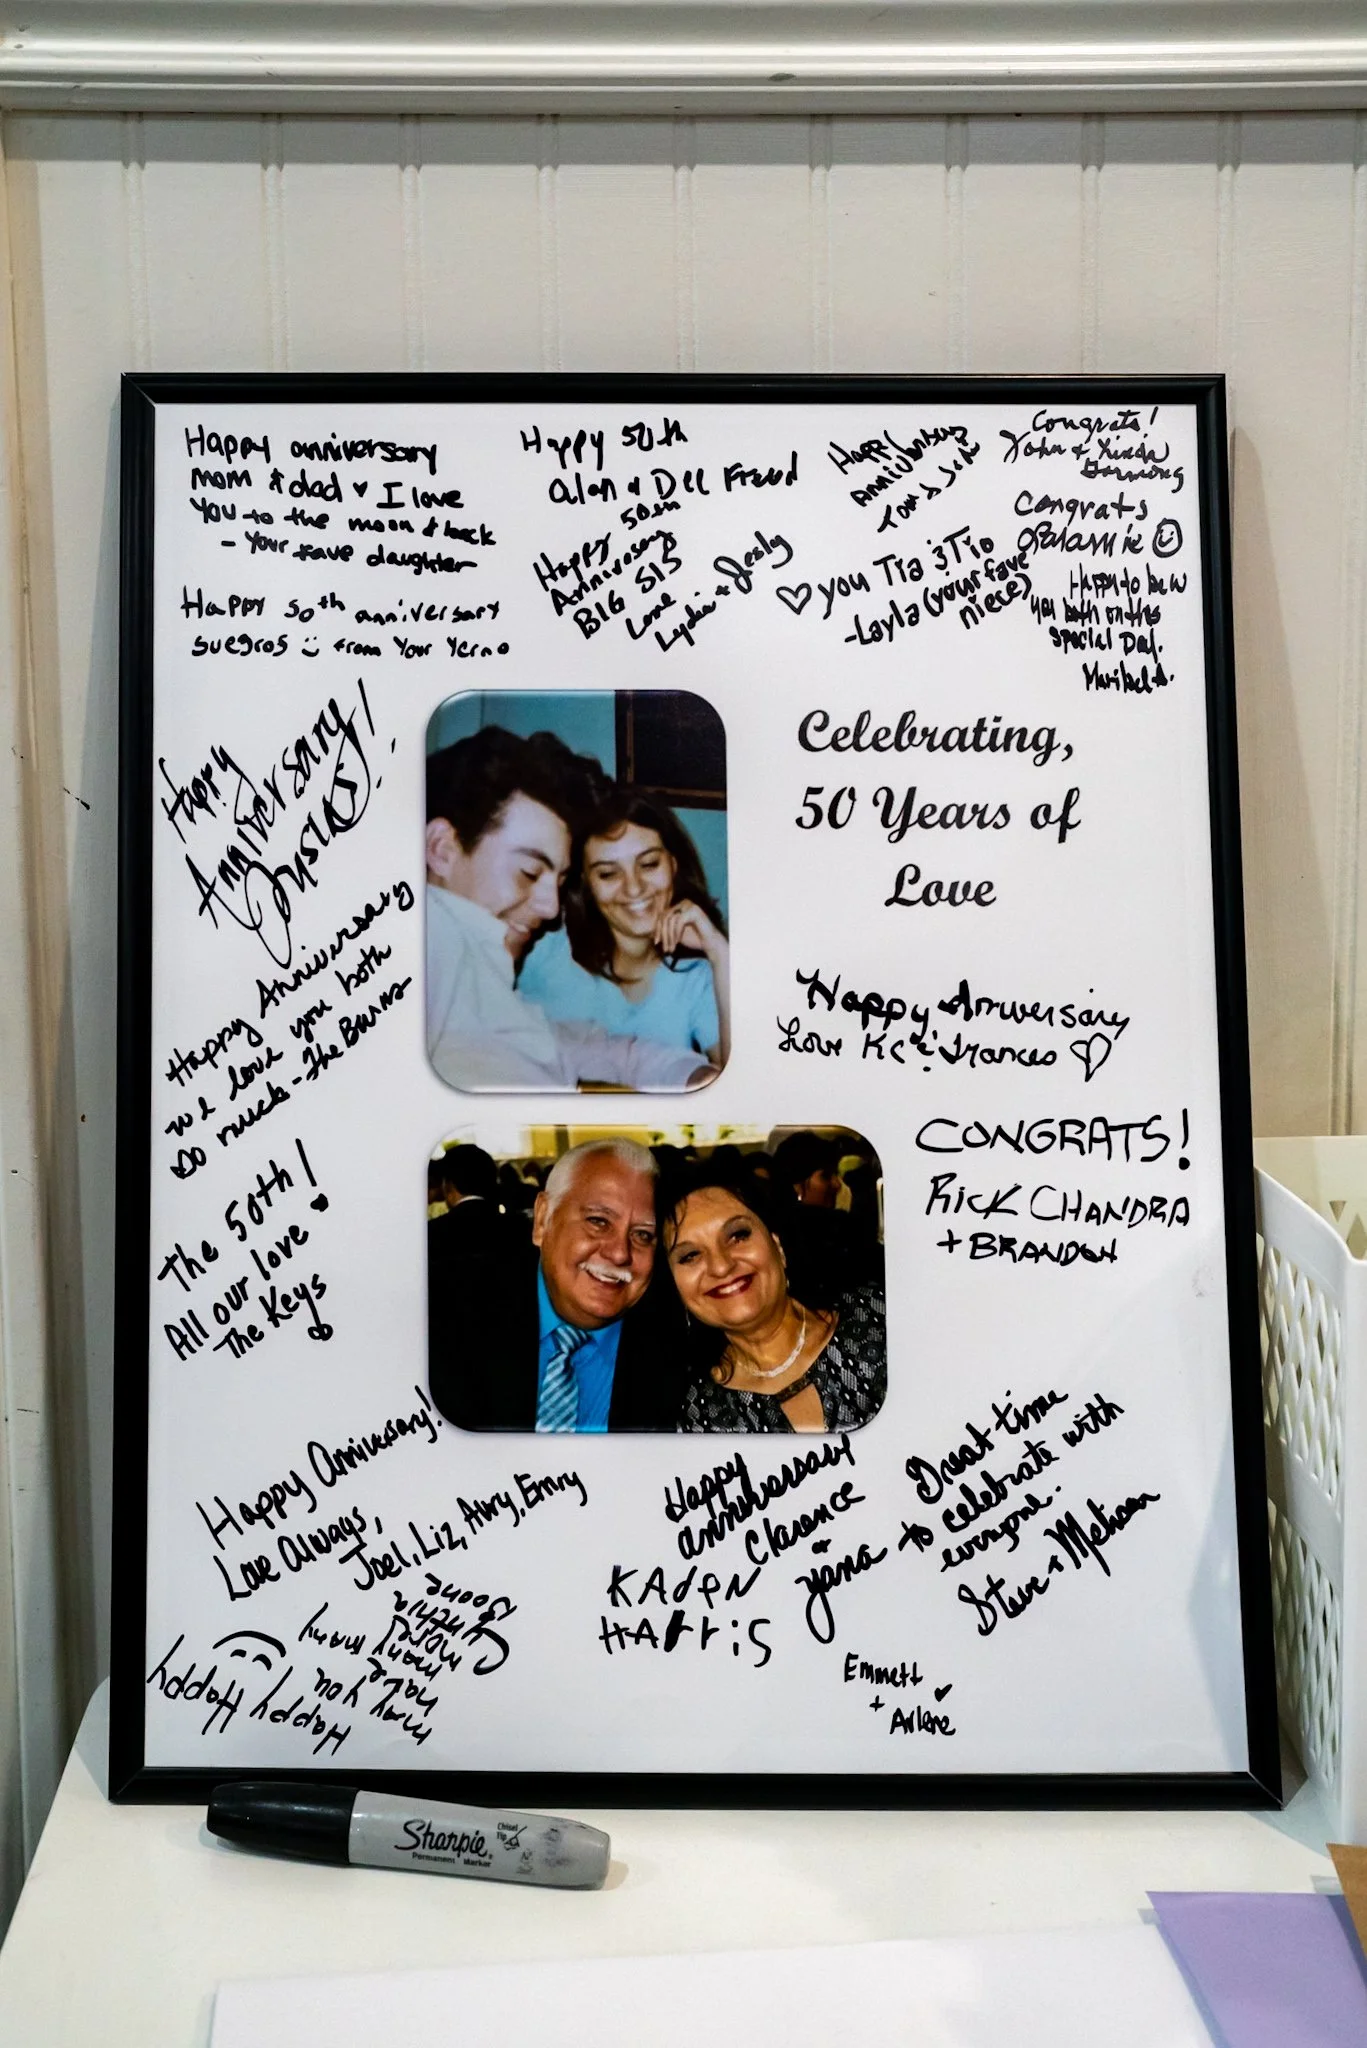 Happy anniversary
mom & dad ♥ I love
You to the moon & back
- Your fave daughter
Happy 50th anniversary
suegros from Your Yerno
Happy 50th
Alan & Dee
Happy 50th
Anniversary
BIG SIS
Love
Lydia +
Happy
Anniversary
♡ you Tia & Tio
-Layla (your fave
niece)
Congrats!
John &
Congrats
Happy to be w
you both on this
Special Day.
Maribel A.
Happy
Anniversary!
Happy Anniversary
we love you both
so much - The Burns
The 50th!
All our love
The Keys
Celebrating,
50 Years of
Love
Happy Anniversary
Love KC & Frances ♡
CONGRATS!
RICK CHANDRA
+ BRANDON
Happy Anniversary!
Love Always,
Joel, Liz, Avry, Emry
Happy Happy
Happy
may you
have
many many
more
Cynthia
Boone
Happy
anniversary
Clarence
&
Yana
KAdEN
HARRiS
Great time
to celebrate with
everyone.
Steve & Melissa
Emmett
+
Arlene
Sharpie
Permanent Marker
Chisel
Tip